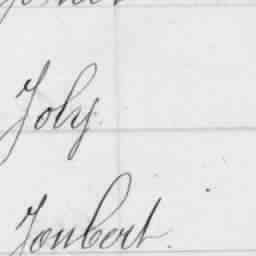 Joly.
Joubert.